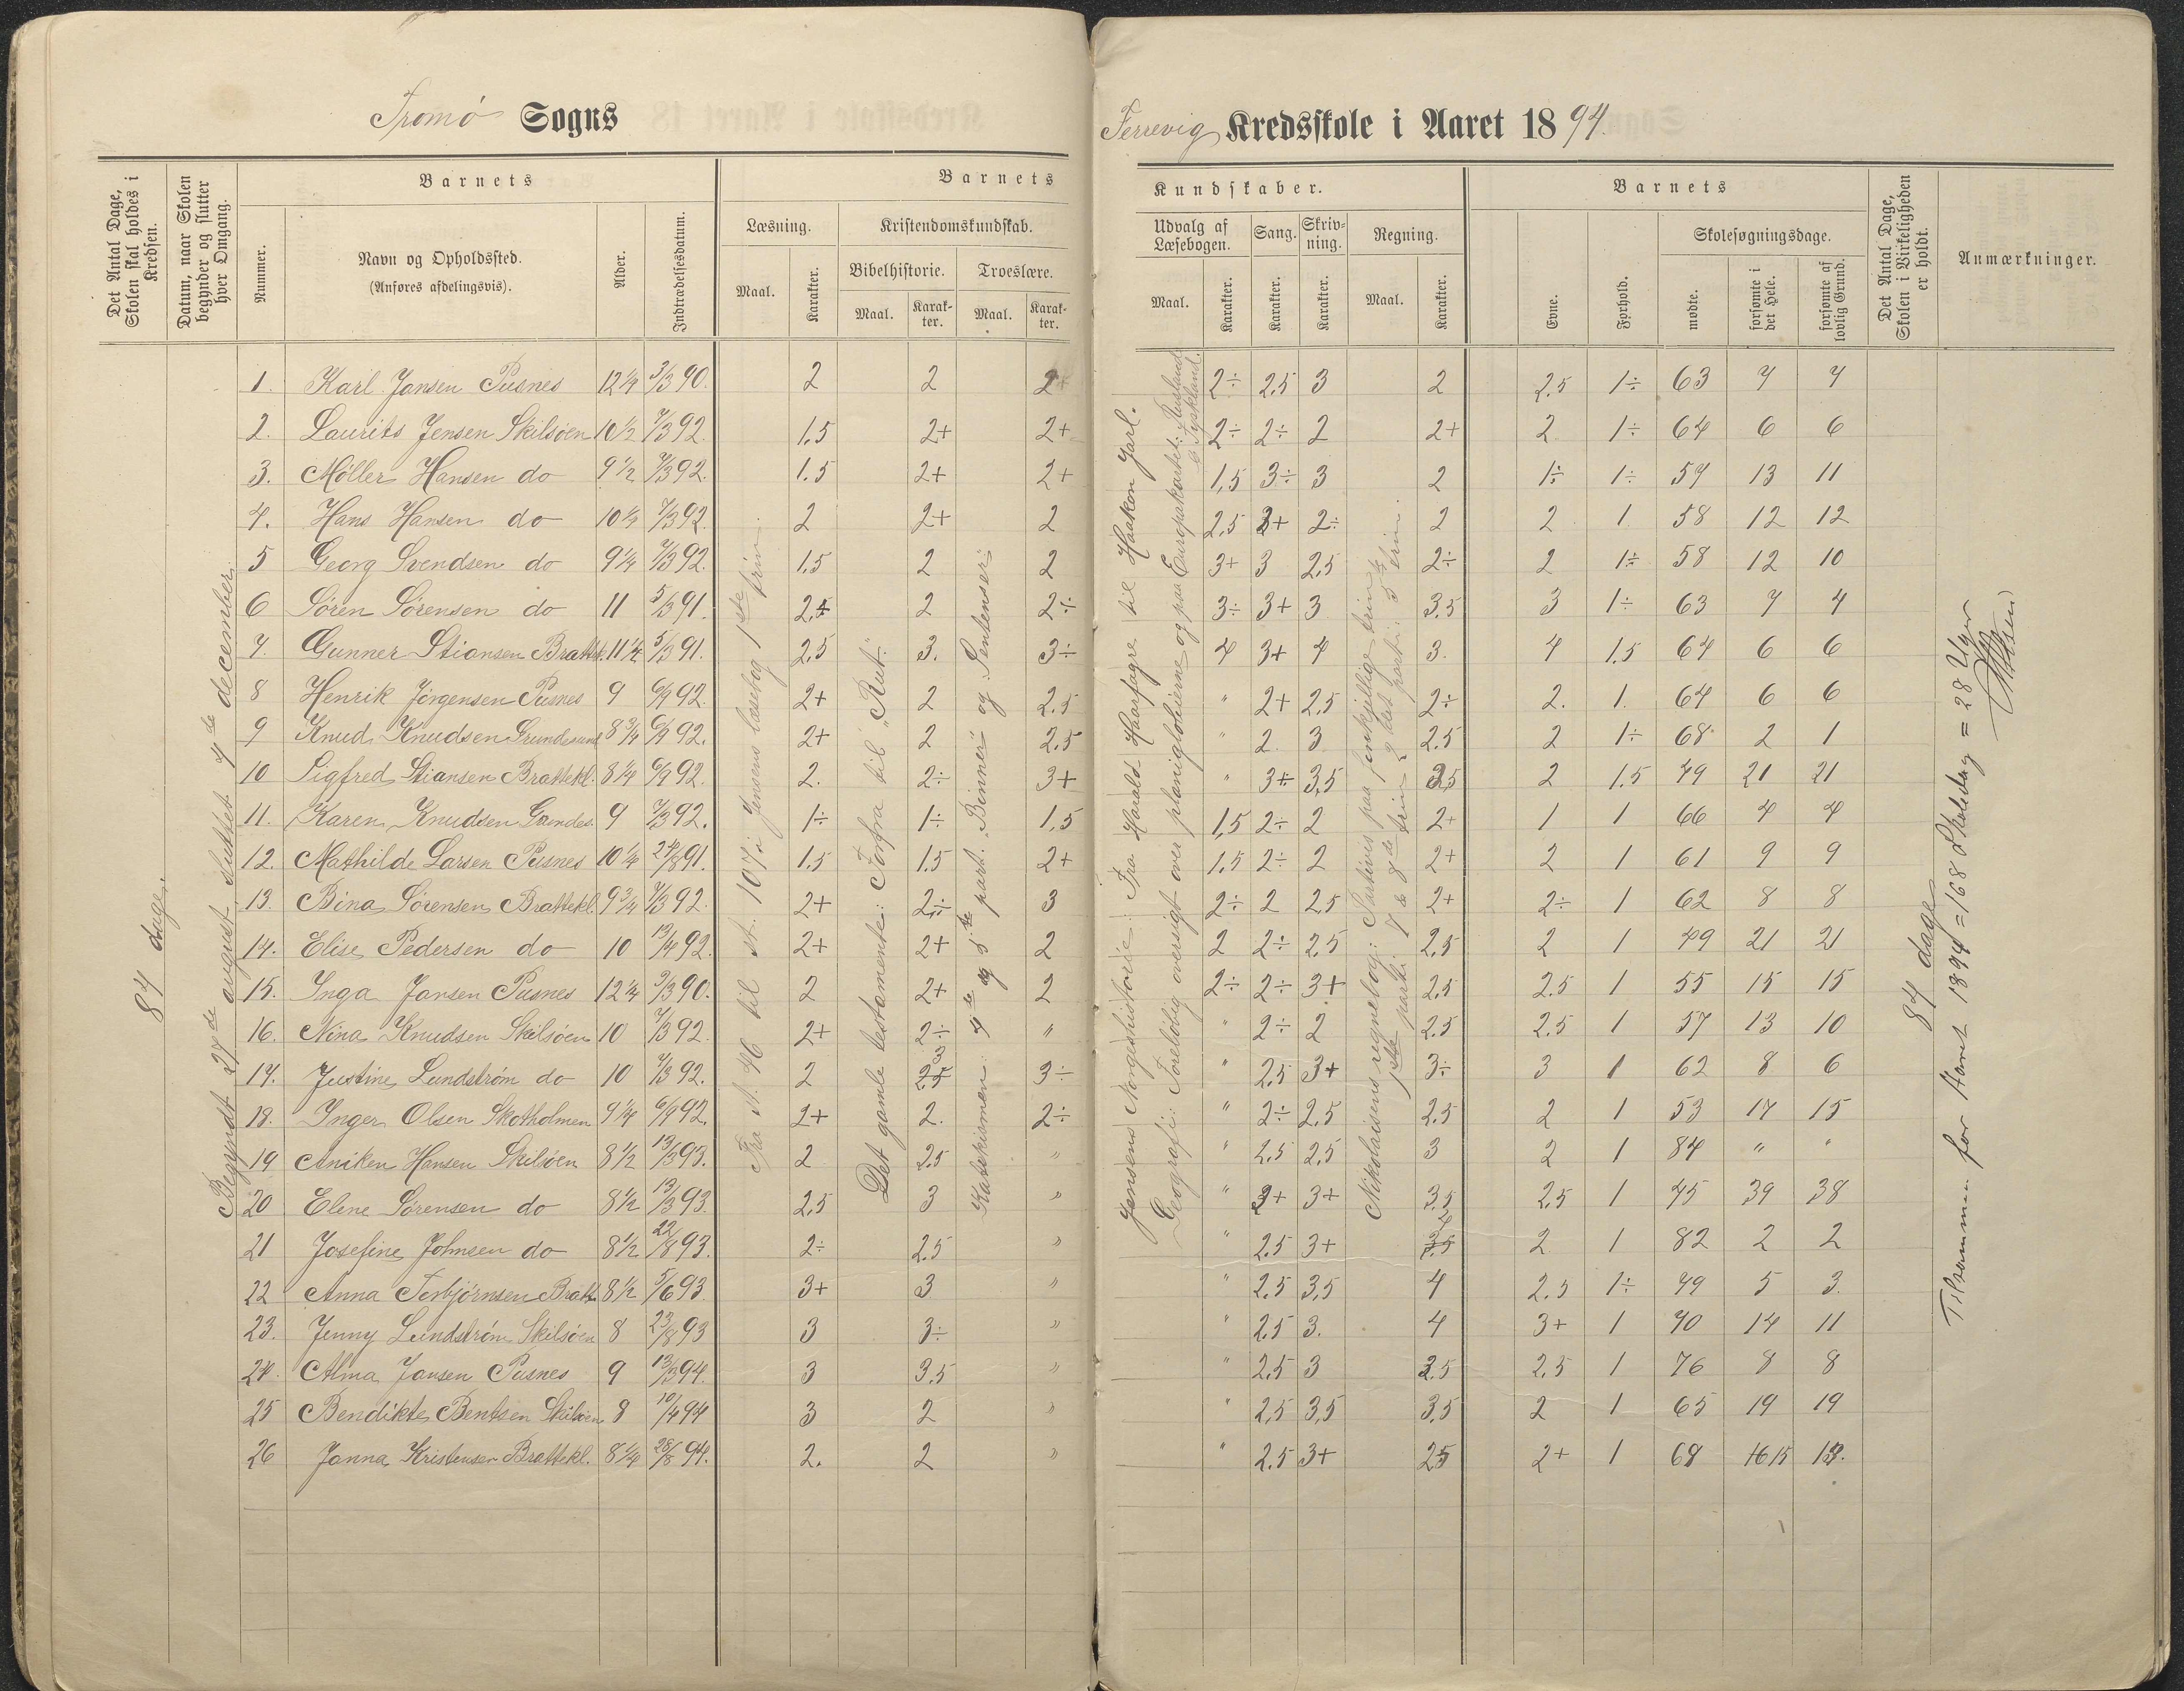 Tromø Sogns
Ferrevig Kredsskole i Aaret 1894.
Det Antal Dage, Skolen skal holdes i Kredsen.
Datum, naar Skolen begynder og slutter hver Omgang.
Barnets
Nummer.
Navn og Opholdssted.
(Anføres afdelingsvis).
Alder.
Indtrædelsesdatum.
Barnets
Læsning.
Maal.
Karakter.
Kristendomskundskab.
Bibelhistorie.
Maal.
Karakter.
Troeslære.
Maal.
Karakter.
Kundskaber.
Udvalg af Læsebogen.
Maal.
Karakter.
Sang.
Karakter.
Skrivning.
Karakter.
Regning.
Maal.
Karakter.
Barnets
Evne.
Forhold.
Skolesøgningsdage.
mødte.
forsømte i det Hele.
forsømte af lovlig Grund.
Det Antal Dage, Skolen i Virkeligheden er holdt.
Anmærkninger.
84 dage.
Begyndt 27de august, sluttet 4de december.
Fra st. 46 til st. 107 i Jensens læsebog 1ste trin.
Det gamle testamente: Forfra til "Rut".
Katekismen: 4de og 5te part. "Binner" og "Sentenser"
Jensens Norgeshistorie: Fra Harald Haarfagre til Haakon Jarl.
Geografi: Foreløbig oversigt over planigloberne og paa Europakartet: Rusland & Tyskland.
Nikolaisens regnebog: Partivis paa forskjellige trin
84 dage
Tilsammen for Aaret 1894 = 168 Skoledag = 28 Uger
1. Karl Jansen Pusnes 12 1/4 3/3 90. 2 2 2+ 2÷ 2,5 3 2 2.5 1÷ 63 7 7
2. Laurits Jensen Skilsøen 10 1/2 7/3 92. 1,5 2+ 2+ 2÷ 2÷ 2 2+ 2 1÷ 64 6 6
3. Møller Hansen do 9 1/2 7/3 92. 1.5 2+ 2+ 1,5 3÷ 3 2 1÷ 1÷ 57 13 11
4. Hans Hansen do 10 1/4 7/3 92. 2 2+ 2 2,5 3+ 2÷ 2 2 1 58 12 12
5 Georg Svendsen do 9 1/4 7/3 92. 1,5 2 2 3+ 3 2,5 2÷ 2 1÷ 58 12 10
6 Søren Sørensen do 11 5/3 91. 2,5 2 2÷ 3÷ 3+ 3 3.5 3 1÷ 63 7 4
7. Gunner Stiansen Brattek. 11 1/4 5/3 91. 2,5 3. 3÷ 4 3+ 4 3. 4 1.5 64 6 6
8 Henrik Jørgensen Pusnes 9 6/9 92. 2+ 2 2.5 " 2+ 2,5 2÷ 2. 1. 64 6 6
9 Knud Knudsen Grundesund 8 3/4 6/9 92. 2+ 2 2,5 " 2 3 2.5 2 1÷ 68 2 1
10 Sigfred Stiansen Brattekl. 8 1/4 6/9 92. 2. 2÷ 3+ " 3+ 3,5 3,5 2 1.5 49 21 21
11. Karen Knudsen Grundes. 9 7/3 92. 1÷ 1÷ 1,5 1,5 2÷ 2 2+ 1 1 66 4 4
12. Mathilde Larsen Pusnes 10 1/4 24/8 91. 1.5 1.5 2+ 1,5 2÷ 2 2+ 2 1 61 9 9
13. Bina Sørensen Brattekl. 9 3/4 7/3 92. 2+ 2÷ 3 2÷ 2 2,5 2+ 2÷ 1 62 8 8
14. Elise Pedersen do 10 13/4 92. 2+ 2+ 2 2 2÷ 2,5 2,5 2 1 49 21 21
15. Inga Jansen Pusnes 12 1/4 3/3 90. 2 2+ 2 2÷ 2÷ 3+ 2,5 2.5 1 55 15 15
16. Nina Knudsen Skilsøen 10 7/3 92. 2+ 2÷ " " 2÷ 2 2.5 2.5 1 57 13 10
17. Justine Lundstrøm do 10 7/3 92. 2 3÷ " 2,5 3+ 3÷ 3 1 62 8 6
18. Inger Olsen Skotholmen 9 1/4 6/9 92. 2+ 2. 2÷ " 2÷ 2,5 2.5 2 1 53 17 15
19 Aniken Hansen Skilsøen 8 1/2 13/3 93. 2 2.5 " " 2.5 2,5 3 2 1 84 " "
20 Elene Sørensen do 8 1/2 13/3 93. 2,5 3 " " 3+ 3+ 3.5 2,5 1 45 39 38
21 Josefine Johnsen do 8 1/2 22/8 93. 2÷ 2.5 " " 2,5 3+ 2 1 82 2 2
22 Anna Torbjørnsen Bratt. 8 1/2 5/6 93 3+ 3 " " 2.5 3,5 4 2.5 1÷ 79 5 3.
23. Jenny Lundstrøm Skilsøen 8 23/8 93 3 3÷ " " 2.5 3. 4 3+ 1 70 14 11
24. Alma Jansen Pusnes 9 13/3 94. 3 3.5 " " 2,5 3 3.5 2,5 1 76 8 8
25 Bendikte Bentsen Skilsøen 8 10/4 94 3 2 " " 2,5 3,5 3,5 2 1 65 19 19
26 Janna Kristensen Brattekl. 8 1/4 28/8 94. 2. 2 " " 2.5 3+ 2,5 2+ 1 68 16 15